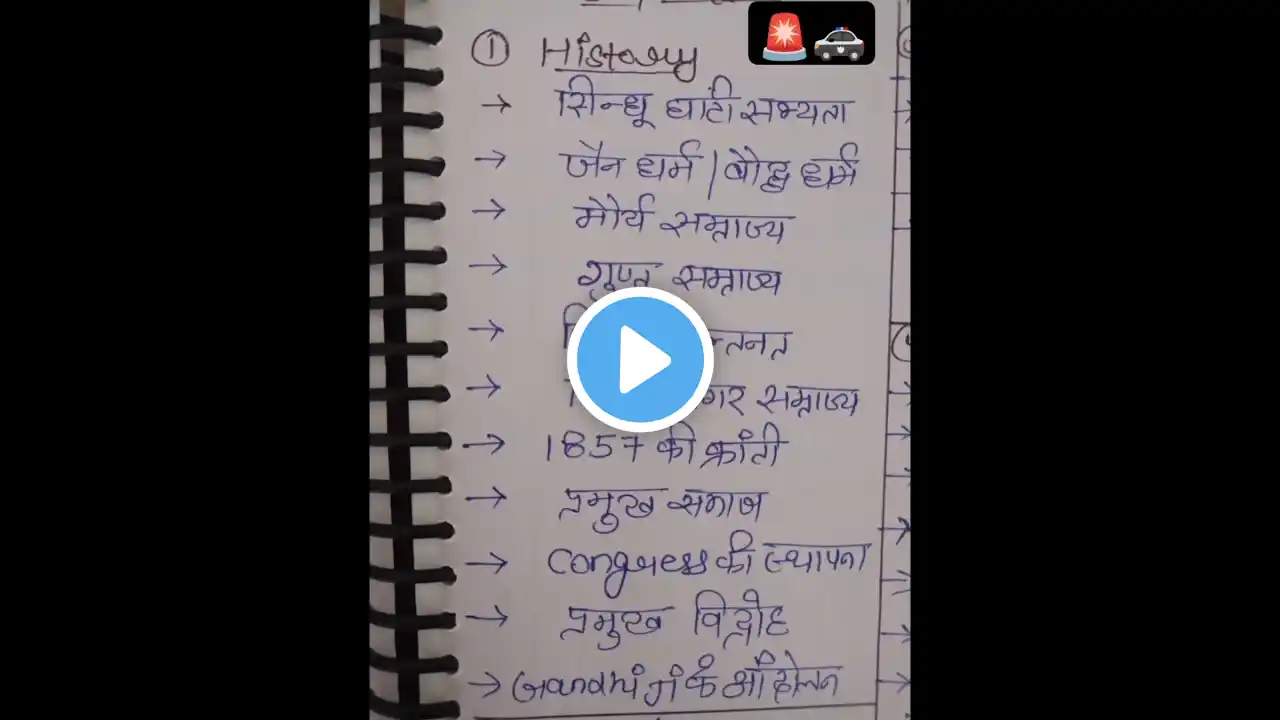 ① History
→ सिन्धू घाटी सभ्यता
→ जैन धर्म / बौद्ध धर्म
→ मौर्य सम्राज्य
→ गुप्त सम्राज्य
→ न्तनत
→ गर सम्राज्य
→ 1857 की क्रांती
→ प्रमुख समाज
→ Congress की स्थापना
→ प्रमुख विद्रोह
→ Gandhi जी के आंदोलन